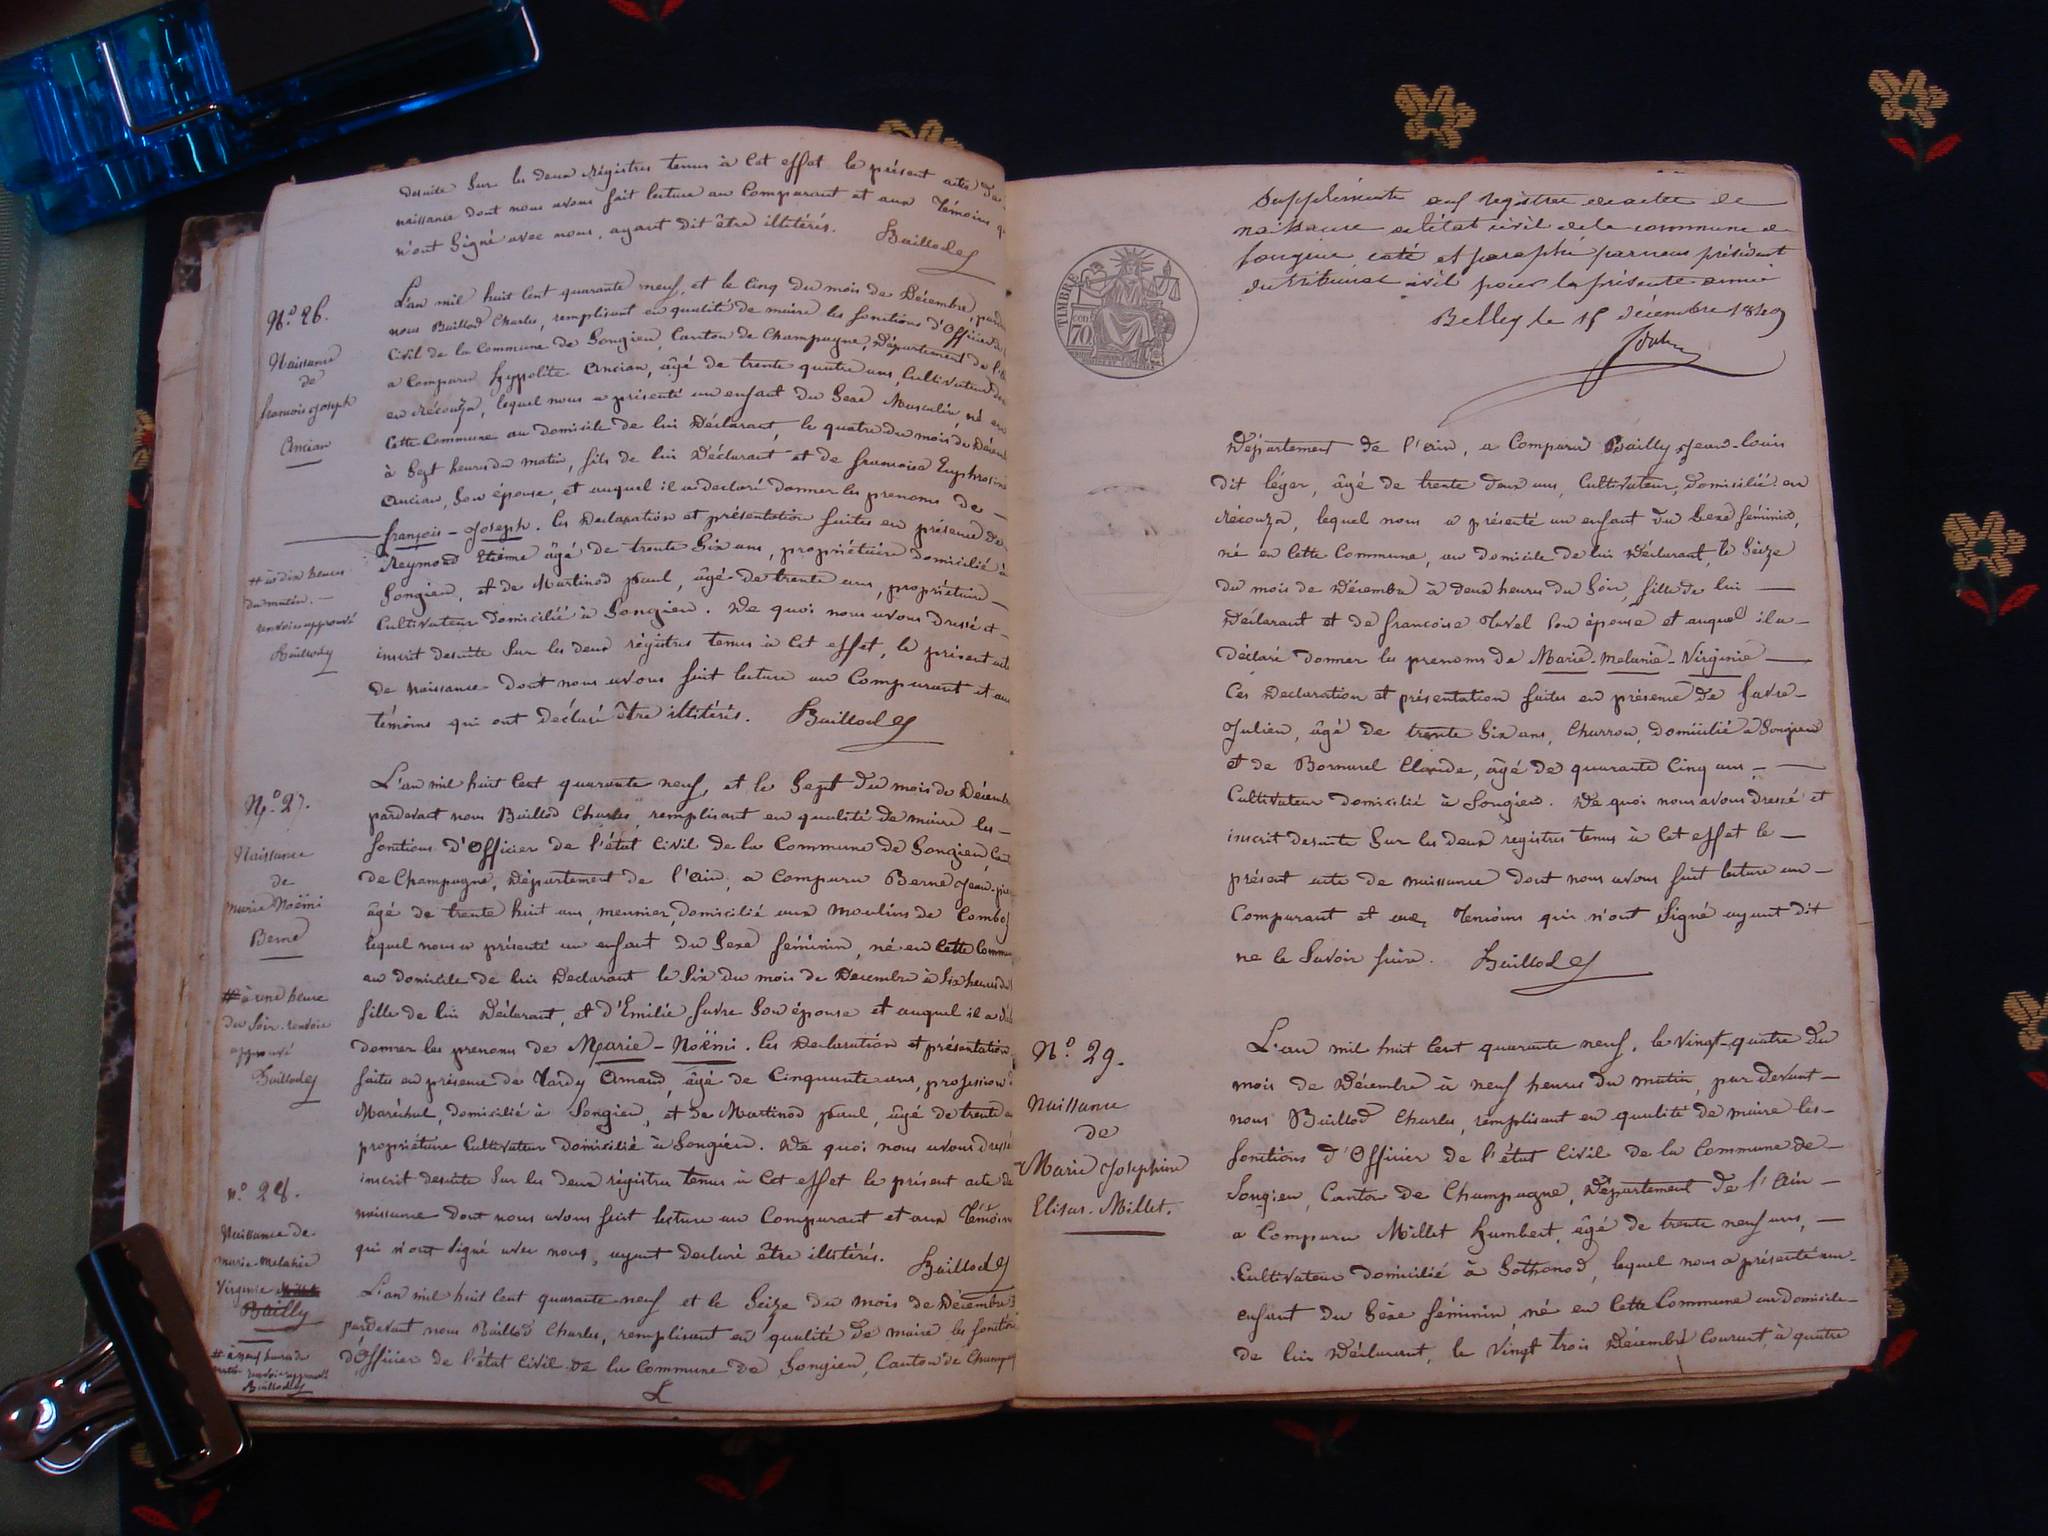 desuite Sur les deux régistres tenus à Cet effet le présent acte de
naissance dont nous avons fait lecture au Comparant et aux Témoins qui
n'ont Signé avec nous, ayant dit être illitérés. Baillod
N.º 26.
Naissance
de
françois Joseph
Ancian
# à dix heures
du matin. —
renvoi approuvé
Baillod
L'an mil huit Cent quarante neuf, et le Cinq du mois de Décembre, pardevant
nous Baillod Charles, remplissant en qualité de maire les fonctions d'Officier de l'état
Civil de la Commune de Songieu, Canton de Champagne, Département de l'Ain
a Comparu hyppolite Ancian, âgé de trente quatre ans, Cultivateur
en Récouza, lequel nous a présenté un enfant du Sexe Masculin, né en
Cette Commune au domicile de lui Déclarant, le quatre du mois de Décembre
à Sept heures du matin, fils de lui Déclarant et de francoise Euphrosine
Ancian, Son épouse, et auquel il a declaré donner les prenoms de —
françois - Joseph. les Declaration et présentation faites en présence de
Reymond Etiéne âgé de trente Six ans, propriétaire domicilié à
Songieu, et de Martinod paul, âgé de trente ans, propriétaire —
Cultivateur domicilié à Songieu. De quoi nous avons Dressé et —
inscrit desuite Sur les deux régistres tenus à Cet effet, le présent acte
de Naissance Dont nous avons fait lecture au Comparant et aux
témoins qui ont declaré être illitérés. Baillod
N.º 27.
Naissance
de
marie Noëmi
Berne
# à une heure
du Soir. renvoi
approuvé
Baillod
L'an mil huit Cent quarante neuf, et le Sept du mois de Décembre
pardevant nous Baillod Charles, remplissant en qualité de maire les —
fonctions d'Officier de l'état Civil de la Commune de Songieu, Canton
de Champagne, Département de l'Ain, a Comparu Berne Jean
âgé de trente huit ans, meunier, domicilié aux moulins de
lequel nous a présenté un enfant du Sexe féminin, né en Cette Commune
au domicile de lui Declarant le Six du mois de Décembre à Six heures du
fille de lui Déclarant, et d'Emilie favre Son épouse et auquel il a
donner les prenoms de Marie - Noëmi. les Declaration et présentation
faites en présence de Tardy Armand, âgé de Cinquante ans, profession de
Maréchal, domicilié à Songieu, et de Martinod paul, âgé de trente ans
propriétaire Cultivateur domicilié à Songieu. De quoi nous avons dressé
inscrit desuite Sur les deux régistres tenus à Cet effet le présent acte de
naissance dont nous avons fait lecture au Comparant et aux Témoins
qui n'ont Signé avec nous, ayant declaré être illitérés. Baillod
n.º 28.
Naissance de
marie-melanie
Virginie
Bailly
# à neuf heures du
matin renvoi approuvé
Baillod
L'an mil huit Cent quarante neuf et le Seize du mois de Décembre #
pardevant nous Baillod Charles, remplissant en qualité de maire les fonctions
d'Officier de l'état Civil de la Commune de Songieu, Canton de Champagne
Supplément au registre des actes de
naissance de l'état civil de la commune de
Songieu coté et paraphé par nous président
du tribunal civil pour la présente année
Belley le 15 décembre 1849
TIMBRE
70
Département de l'Ain, a Comparu Bailly Jean-louis
dit léger, âgé de trente deux ans, Cultivateur, domicilié en
Récouza, lequel nous a présenté un enfant du Sexe féminin,
né en Cette Commune, au domicile de lui Déclarant, le Seize
du mois de Décembre à deux heures du Soir, fille de lui —
Déclarant et de francoise Tavel Son épouse et auquel il a —
déclaré donner les prenoms de Marie - melanie - Virginie —
Ces Declaration et présentation faites en présence de favre —
Julien, âgé de trente Six ans, Charron, domicilié à Songieu
et de Bornarel Claude, âgé de quarante Cinq ans — —
Cultivateur domicilié à Songieu. De quoi nous avons Dressé et
inscrit desuite Sur les deux registres tenus à Cet effet le —
présent acte de naissance dont nous avons fait lecture au —
Comparant et aux Temoins qui n'ont Signé ayant dit
ne le Savoir faire. Baillod
N.º 29.
Naissance
de
Marie Josephine
Elisa-Millet.
L'an mil huit Cent quarante neuf, le vingt-quatre du
mois de Décembre à neuf heures du matin, par devant —
nous Baillod Charles, remplissant en qualité de maire les —
fonctions d'Officier de l'état Civil de la Commune de —
Songieu, Canton de Champagne, Département de l'Ain —
a Comparu Millet humbert, âgé de trente neuf ans, —
Cultivateur domicilié à Sothonod, lequel nous a présenté un
enfant du Sexe féminin né en Cette Commune au domicile —
de lui Déclarant, le vingt trois Décembre Courant, à quatre